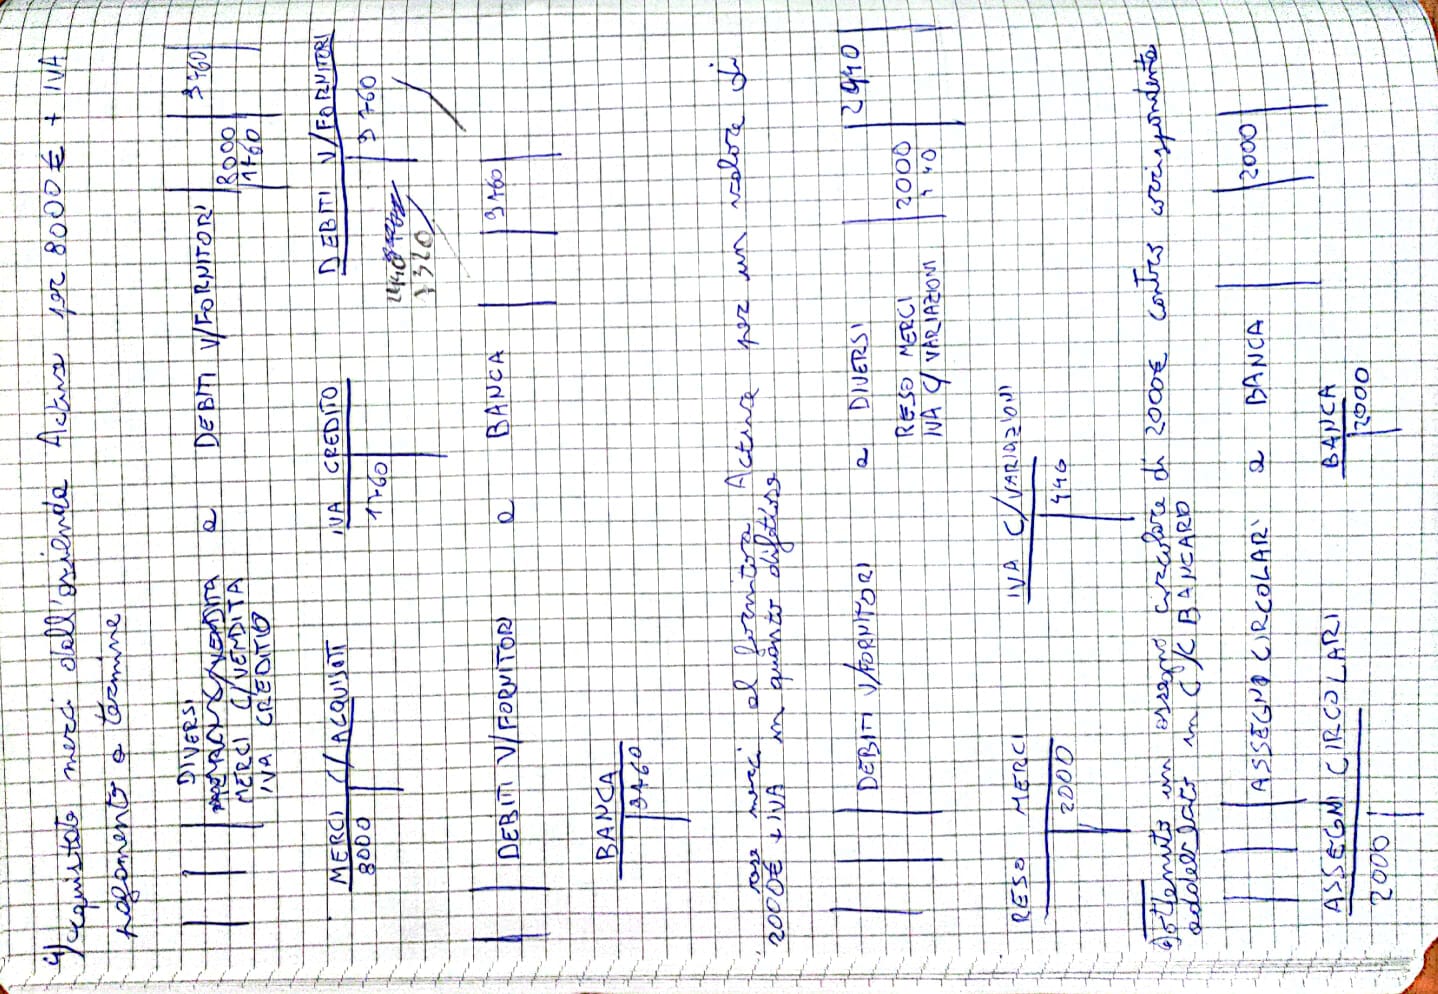 4) acquistato merci dell'azienda Actina per 8000€ + IVA
pagamento a termine
DIVERSI a DEBITI V/FORNITORI 9760
MERCI C/VENDITA 8000
IVA CREDITO 1760
MERCI C/ACQUISTI IVA CREDITO DEBITI V/FORNITORI
8000 1760 9760
2440
7320
DEBITI V/FORNITORI a BANCA 9760
BANCA
9760
reso merci al fornitore Actina per un valore di
2000€ + IVA in quanto difettose
DEBITI V/FORNITORI a DIVERSI 2440
RESO MERCI 2000
IVA C/VARIAZIONI 440
RESO MERCI IVA C/VARIAZIONI
2000 440
ottenuto un assegno circolare di 2000€ contro corrispondente
addebitato in C/C BANCARIO
ASSEGNI CIRCOLARI a BANCA 2000
ASSEGNI CIRCOLARI BANCA
2000 2000